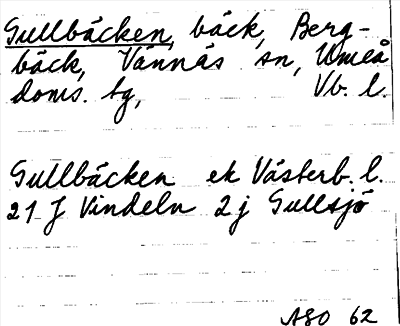 Gullbäcken, bäck, Berg-
bäck, Vännäs sn, Umeå
doms. tg, Vb. l.
Gullbäcken ek Västerb. l.
21 J Vindeln 2 j Gullsjö
ASO 62